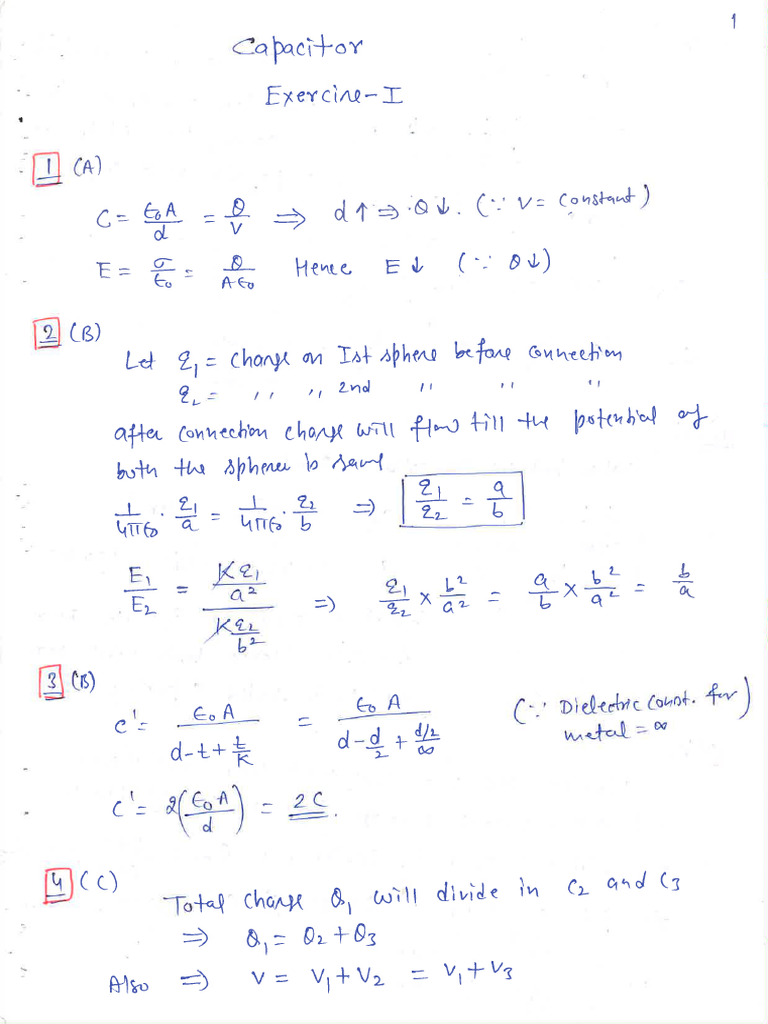 1
Capacitor
Exercise-I
1 (A)
C = ε₀A/d = Q/V ⇒ d↑ ⇒ Q↓. (∵ V = constant)
E = σ/ε₀ = Q/Aε₀ Hence E↓ (∵ Q↓)
2 (B)
Let q₁ = charge on Ist sphere before connection
q₂ = ,, ,, 2nd ,, ,, ,,
after connection charge will flow till the potential of
both the spheres is same
1/4πε₀ · q₁/a = 1/4πε₀ · q₂/b ⇒ q₁/q₂ = a/b
E₁/E₂ = (Kq₁/a²)/(Kq₂/b²) ⇒ q₁/q₂ × b²/a² = a/b × b²/a² = b/a
3 (B)
C' = ε₀A/(d-t+t/K) = ε₀A/(d-d/2+(d/2)/∞) (∵ Dielectric Const. for metal = ∞)
C' = 2(ε₀A/d) = 2C.
4 (C)
Total charge Q₁ will divide in C₂ and C₃
⇒ Q₁ = Q₂ + Q₃
Also ⇒ V = V₁ + V₂ = V₁ + V₃